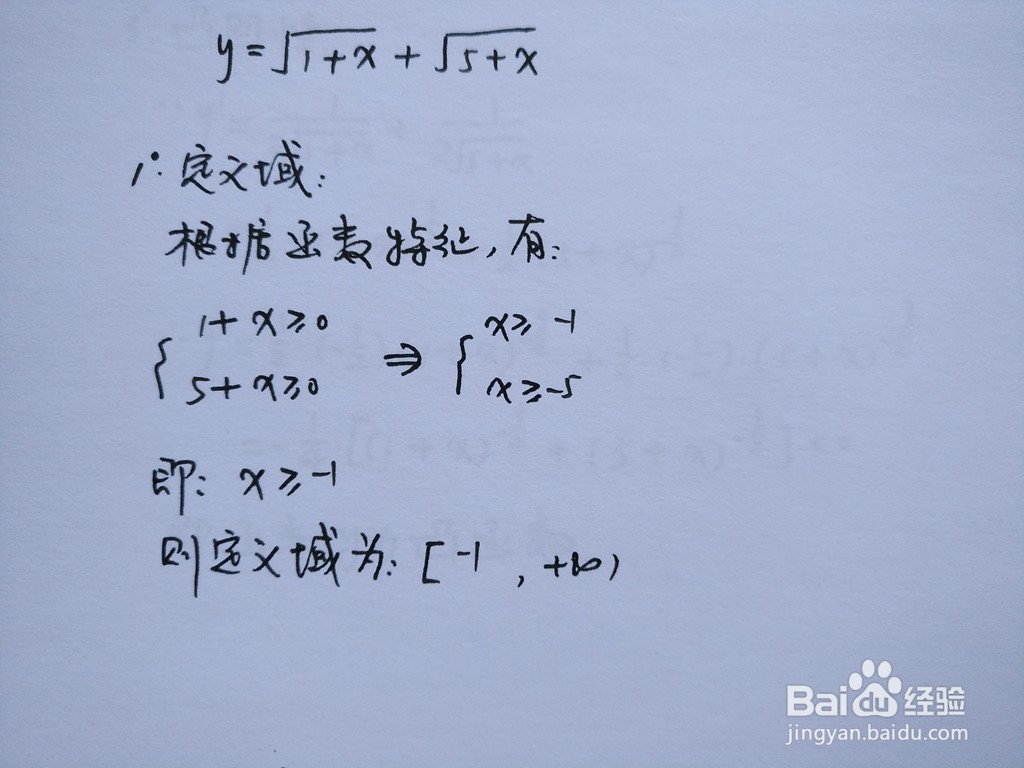 y=√1+x + √5+x
1°. 定义域:
根据函数特征,有:
{ 1+x≥0 ⇒ { x≥-1
5+x≥0 x≥-5
即: x≥-1
则定义域为: [-1 , +∞)
Bai du 经验
jingyan.baidu.com